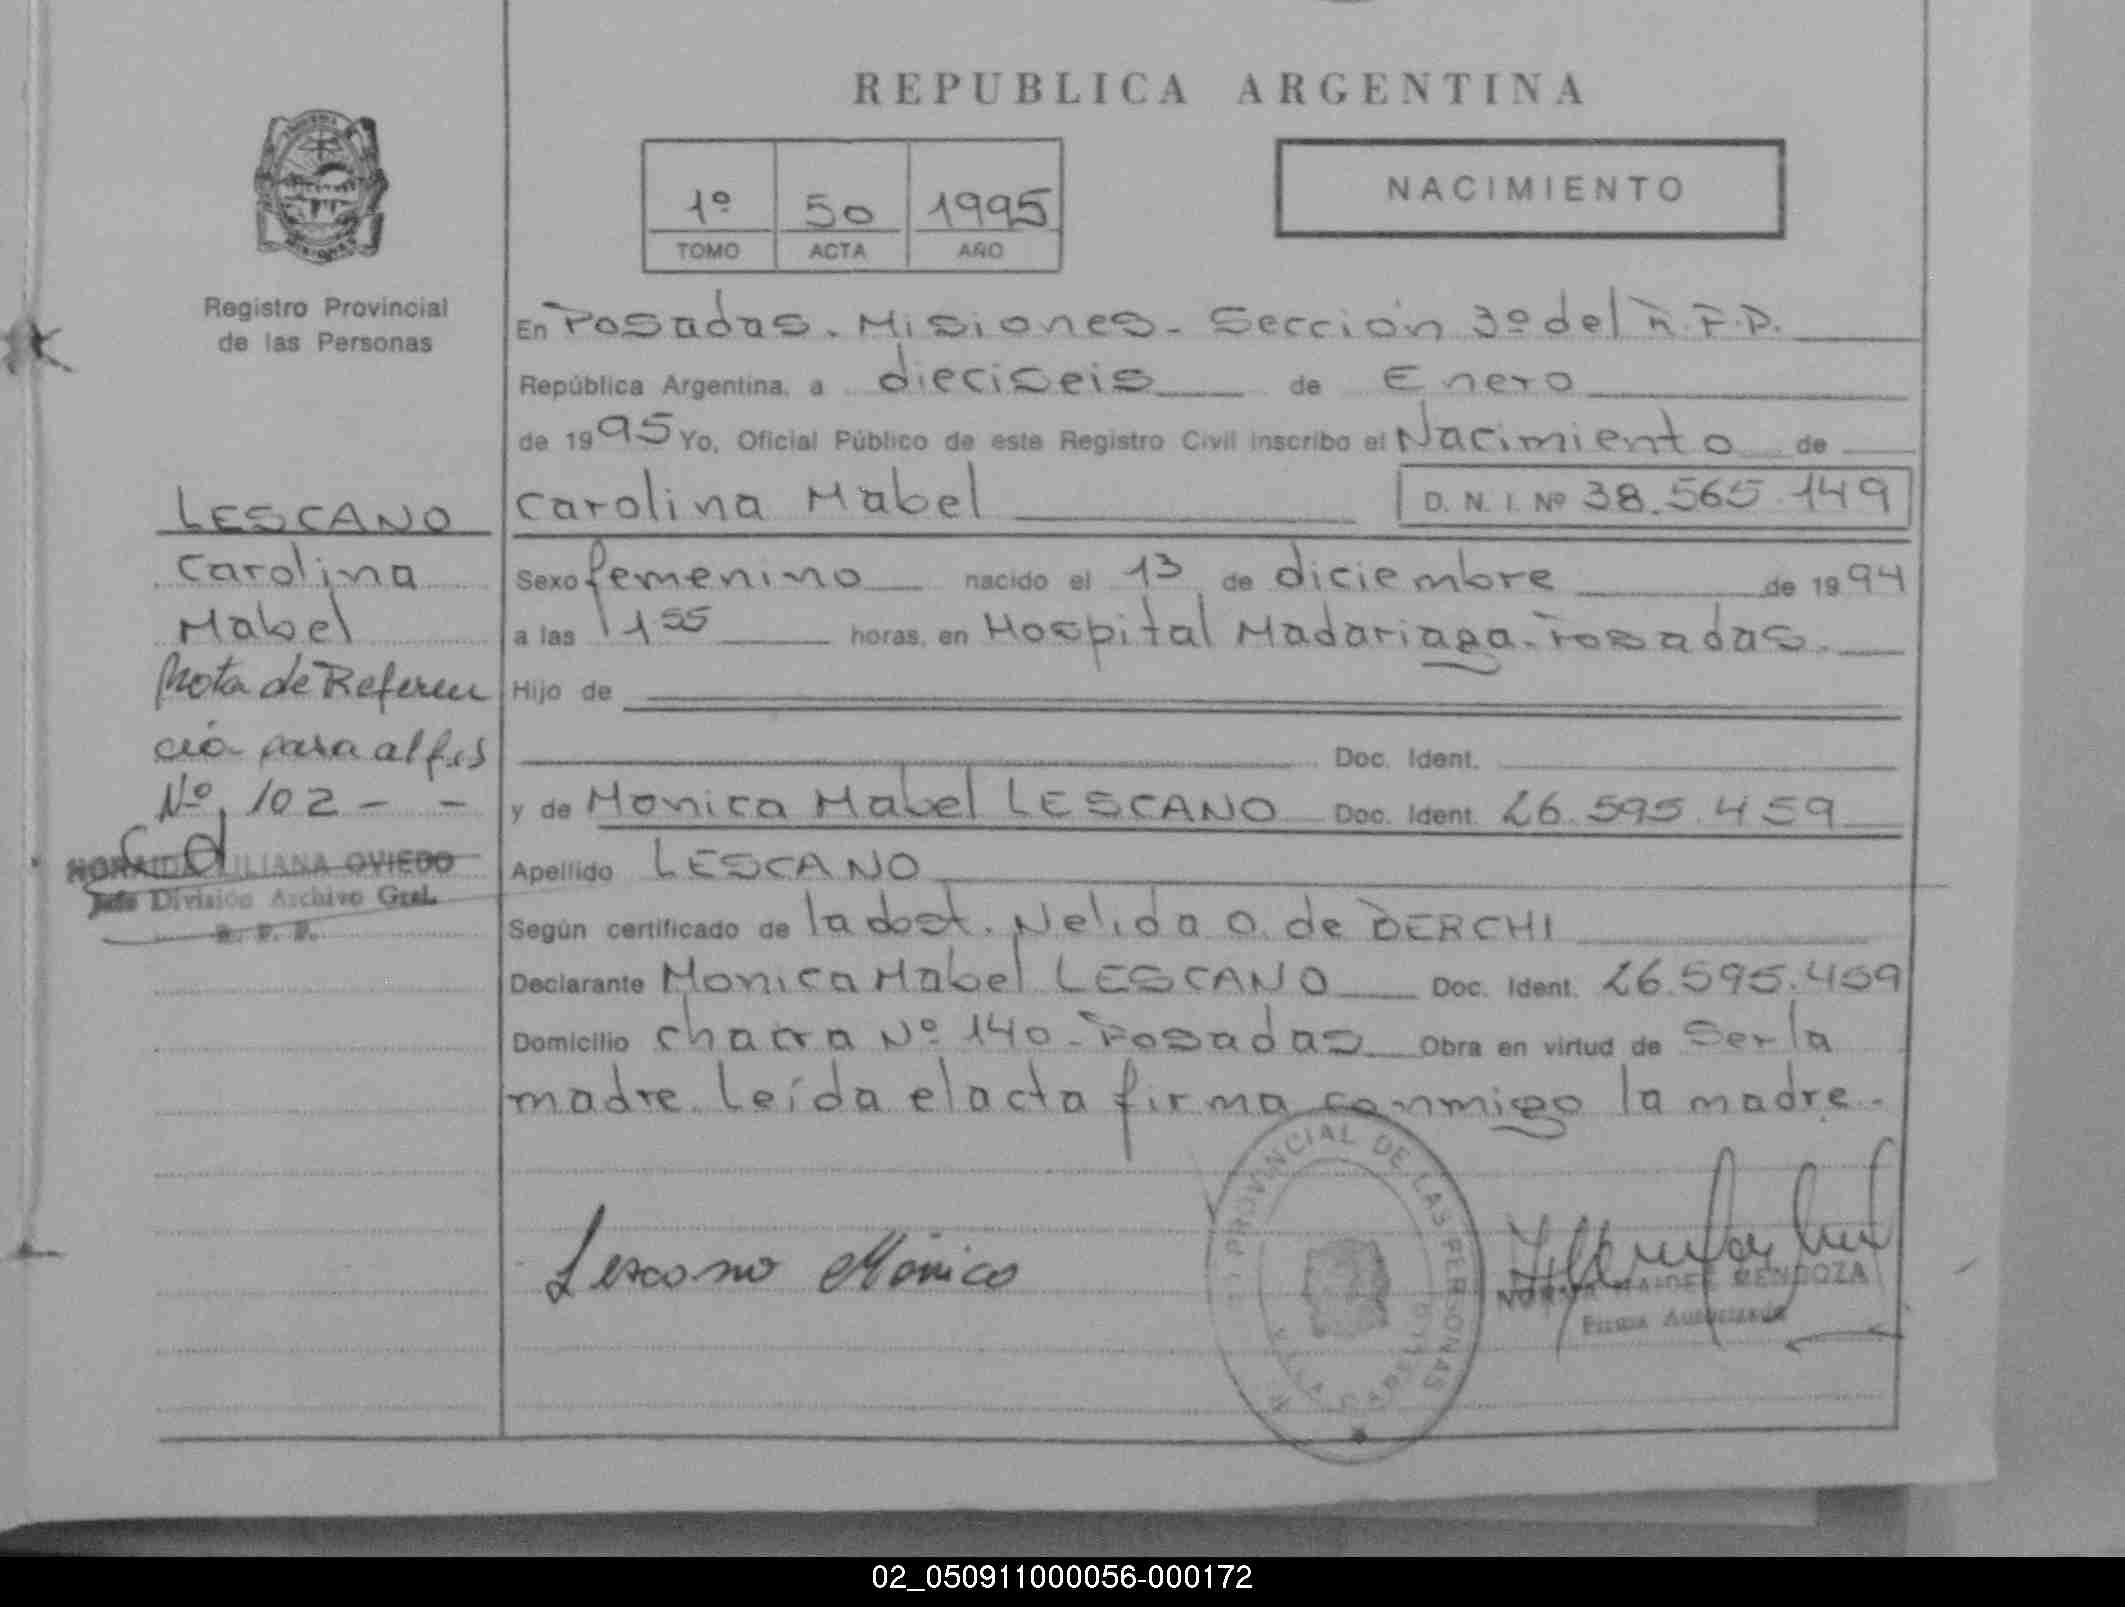 REPUBLICA ARGENTINA
NACIMIENTO
1º 50 1995
TOMO ACTA AÑO
Registro Provincial
de las Personas
LESCANO
Carolina
Mabel
Nota de Referen
cia para alfs
Nº 102 - -
JULIANA OVIEDO
Jefe División Archivo Gral.
R. P. P.
En Posadas. Misiones. Sección 3º del R.P.P.
República Argentina, a dieciseis de Enero
de 1995 Yo, Oficial Público de este Registro Civil inscribo el Nacimiento de
Carolina Mabel D. N. I. Nº 38.565.149
Sexo femenino nacido el 13 de diciembre de 1994
a las 1 55 horas, en Hospital Madariaga. Posadas.
Hijo de
Doc. Ident.
y de Monica Mabel LESCANO Doc. Ident. 26.595.459
Apellido LESCANO
Según certificado de la doct. Nelida O. de DERCHI
Declarante Monica Mabel LESCANO Doc. Ident. 26.595.459
Domicilio chacra Nº 140 - Posadas Obra en virtud de Ser la
madre. Leída el acta firma conmigo la madre.
Lescano Mónica
PROVINCIAL DE LAS PERSONAS
MENDOZA
Firma Autorizada
02_050911000056-000172